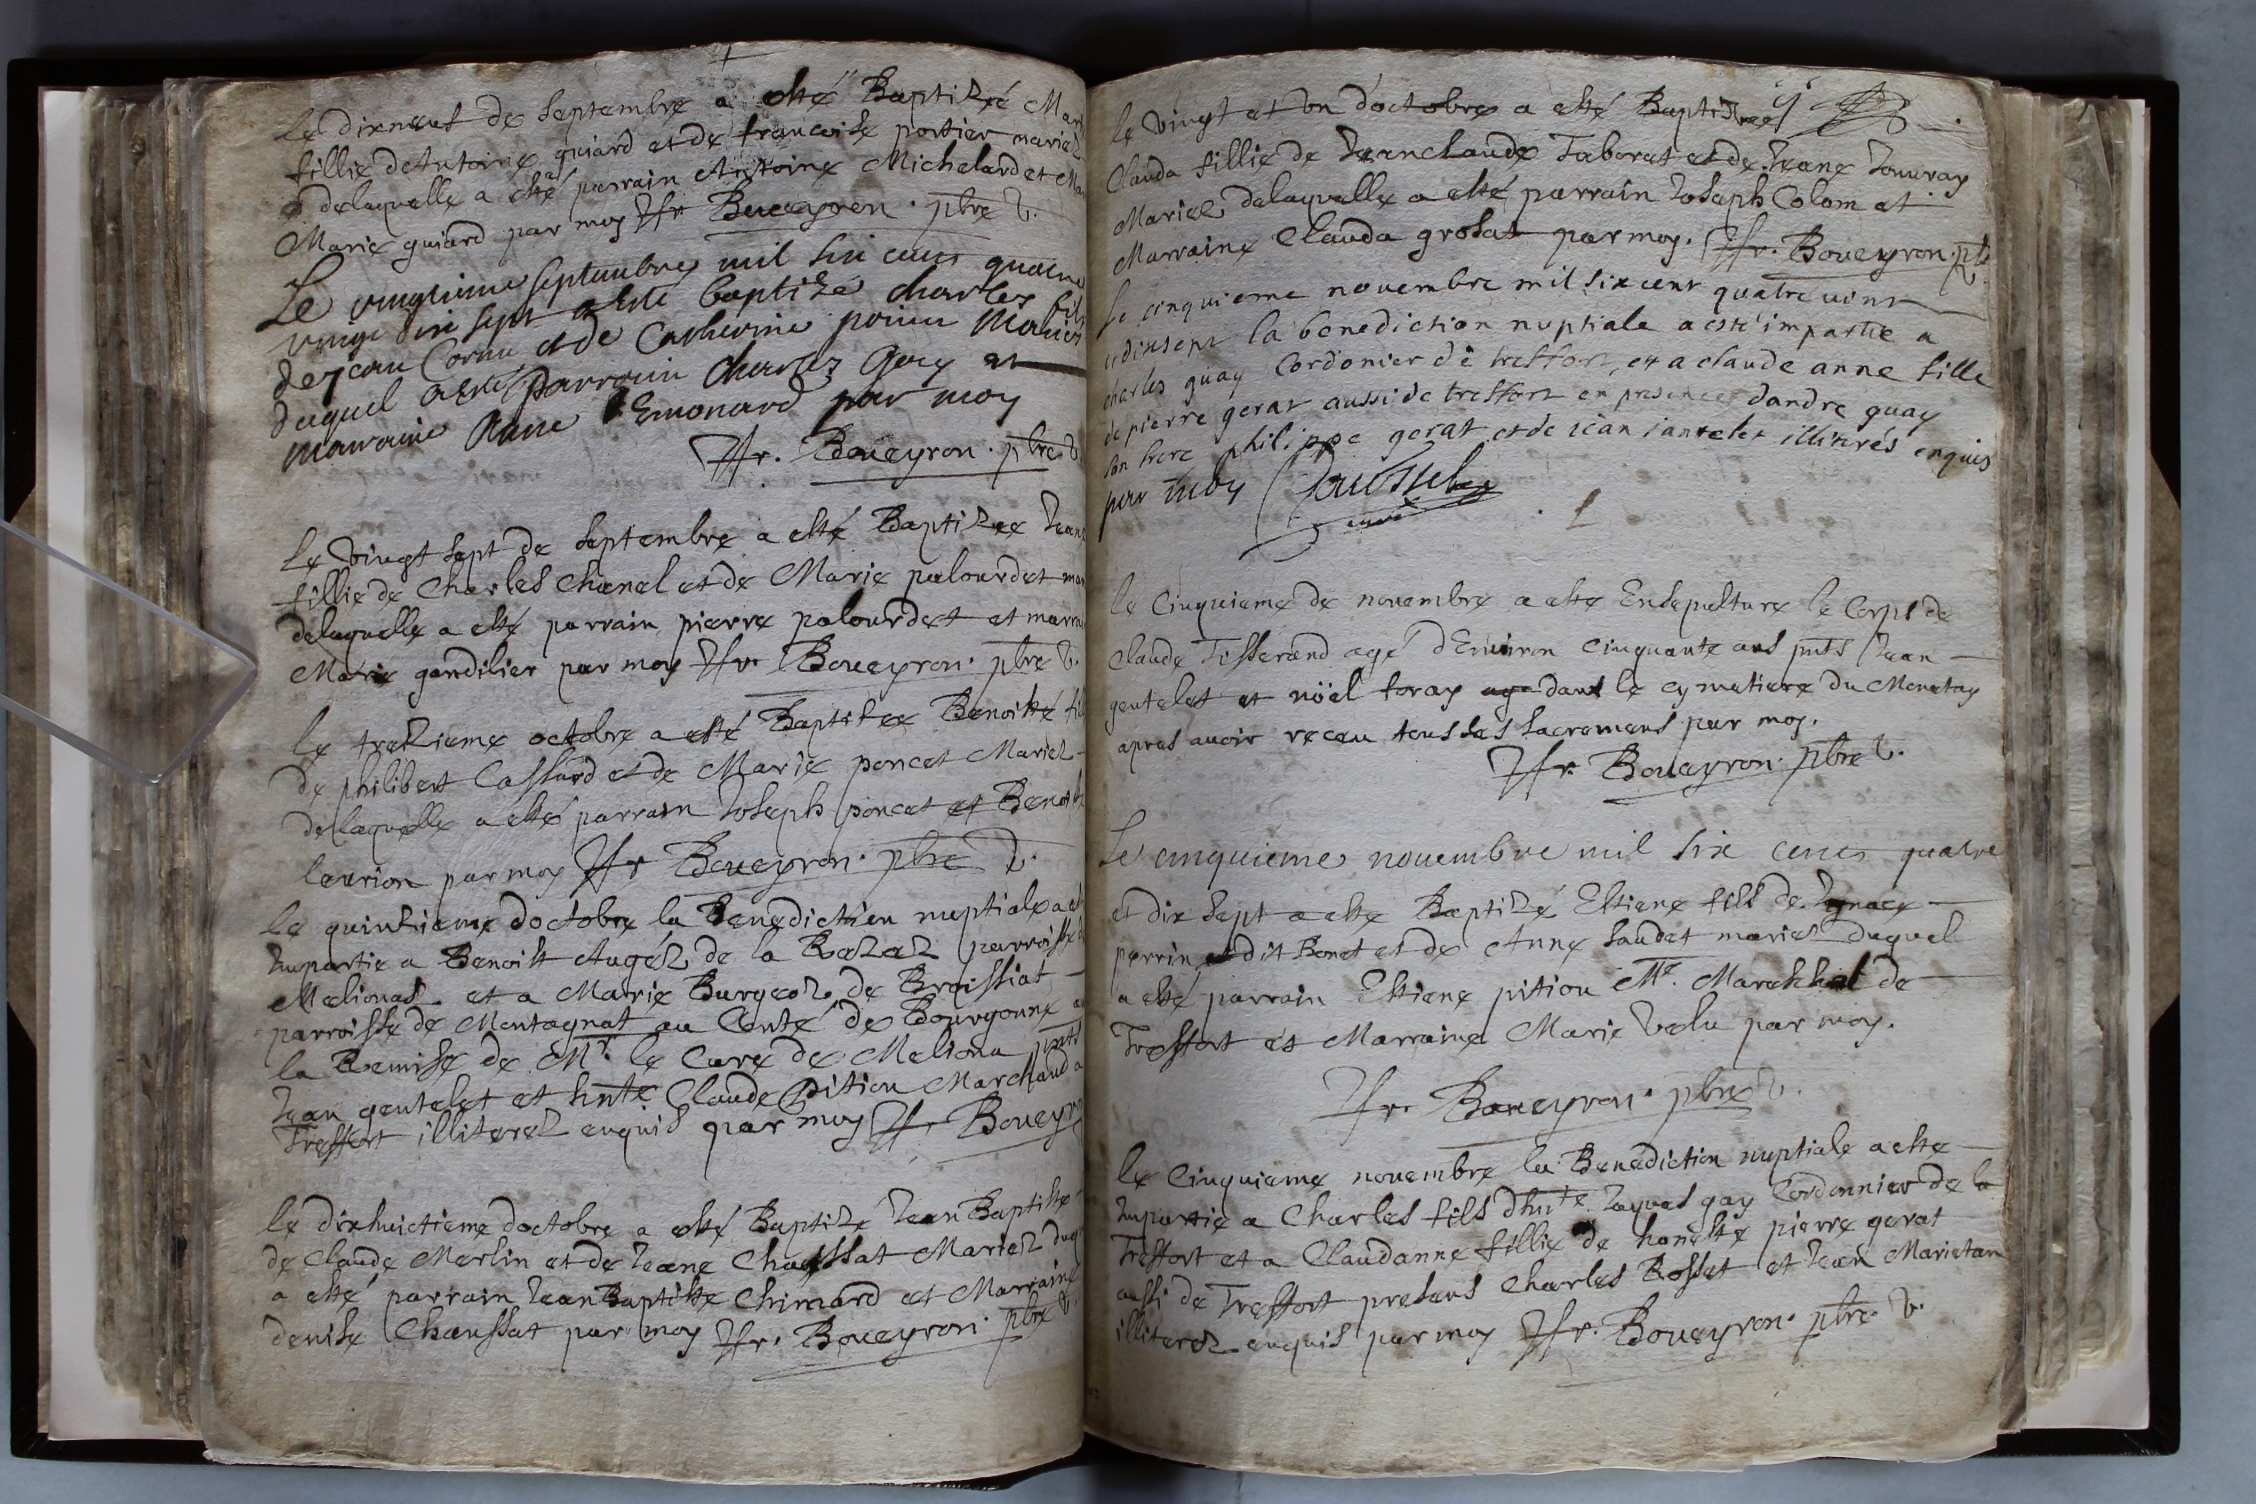 le dixneuf de septembre a esté Baptizée Mari
fillie de Antoine guiard et de francoise portier mariez
delaquelle a esté parrain Antoine Michelard et Mar
Marie guiard par moy Ffr Boueyron. pbre V.
Le vingtieme septembre mil six cens quatre
vingt dix sept a esté baptizé charles fils
de jean Cornu et de Catherine poncet Mariés
duquel a esté parrain charles goy et
marraine Anne Emonard par moy
Ffr. Boueyron. pbre V
le vingt sept de septembre a esté Baptizee Jean
fillie de Charles Chanel et de Marie palourdet mar
delaquelle a esté parrain pierre palourdet et marra
Marie gandilier par moy Ffr. Boueyron. pbre V.
le trezieme octobre a esté Baptisee Benoiste fil
de philibert Cassard et de Marie poncet Mariez
delaquelle a esté parrain Joseph poncet et Benoiste
laurion par moy Ffr Boueyron. pbre V.
le quinzieme doctobre la Benediction nuptiale a est
Impartie a Benoist Augéz de la Razaz parroisse
Melionas et a Marie Burgeoz de Broissiat
parroisse de Montagnat au Conté de Bourgonne
la Remisse de Mr. le Curé de Meliona pnts
Jean gentelet et hnte Claude pition Marchand a
Treffort illiterez enquis par moy Ffr. Boueyron
le dixhuictieme doctobre a esté Baptizé Jean Baptiste
de Claude Merlin et de Jeane Chaussat Mariez duq
a esté parrain Jean Baptiste Chinard et Marraine
denise Chaussat par moy Ffr. Boueyron. pbre V.
le vingt et un d'octobre a esté Baptizee
Clauda fillie de Jeanclaude Taborat et de Jeane Jouvray
Mariez delaquelle a esté parrain Joseph Colom et
Marraine Clauda grosat par moy. Ffr. Boueyron. pb
le cinquieme novembre mil six cent quatre vint
et dixsept la benediction nuptiale a esté impartie a
charles guay Cordonier de treffort, et a claude anne fille
de pierre gerat aussi de treffort en presence dandre guay
son frere philippe gerat et de iean iantelet illitrés enquis
par moy
le Cinquieme de novembre a esté Ensepulture le Corps de
Claude Tisserand agé d'Environ Cinquante ans pnts Jean
gentelet et nöel foray age dans le cymetiere du Monetay
apres avoir receu tous ses sacremens par moy.
Ffr. Boueyron. pbre V.
Le cinquieme novembre mil six cens quatre
et dix sept a esté Baptizé Estiene fils de Ignace
perrin et dit Bonet et de Anne saudet mariez duquel
a esté parrain Estiene pition Mre. Mareschal de
Treffort et Marraine Marie Velu par moy.
Ffr. Boueyron. pbre V.
le Cinquieme novembre la Benediction nuptiale a esté
Impartie a Charles fils d'hnte. Jaques gay Cordonnier de la
Treffort et a Claudanne fillie de honeste pierre gerat
aussi de Treffort presens Charles Rosset et Jean Marietan
illiterez enquis par moy Ffr. Boueyron. pbre. V.